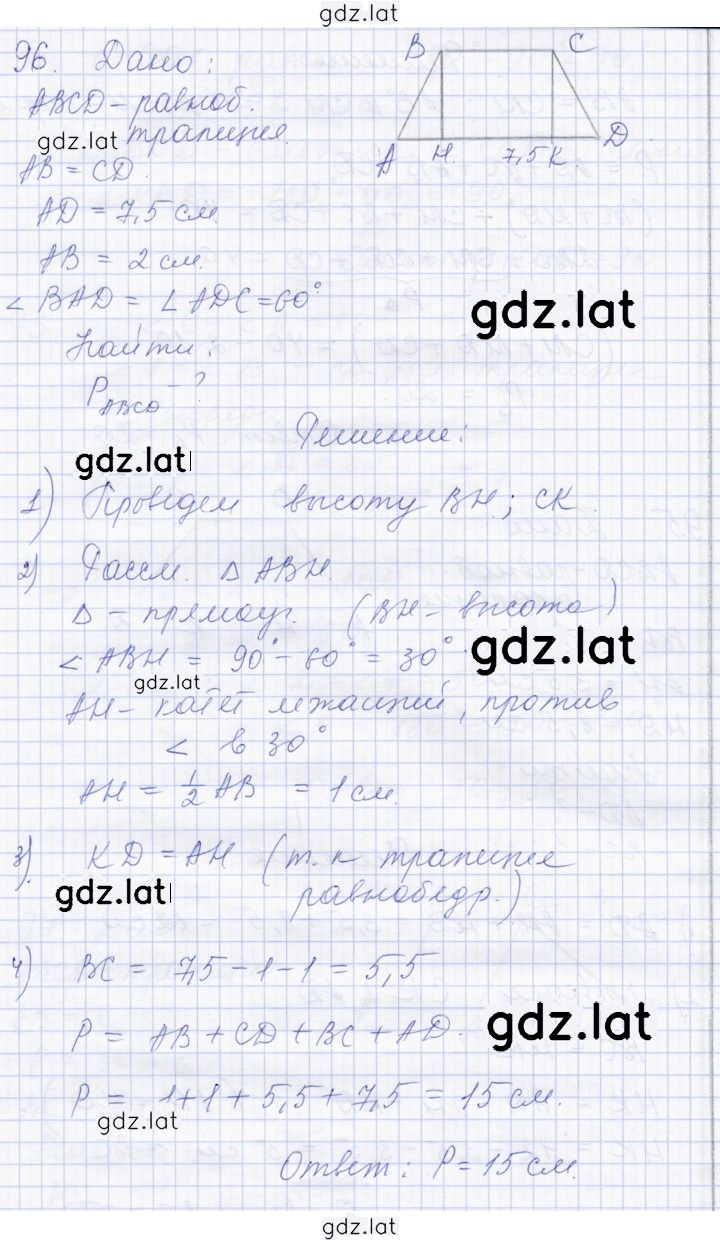 gdz.lat
96. Дано:
B C
ABCD – равноб.
gdz.lat
трапеция.
A H 7,5 K D
AB = CD.
AD = 7,5 см.
AB = 2 см.
< BAD = ∠ ADC = 60°
gdz.lat
Найти:
P ABCD – ?
Решение:
gdz.lat
1) Проведем высоту BH; CK.
2) Рассм. Δ ABH.
Δ – прямоуг. (BH – высота)
< ABH = 90° – 60° = 30°
gdz.lat
gdz.lat
AH – катет лежащий, против
< в 30°
AH = 1/2 AB = 1 см.
3) KD = AH (т.к трапеция
gdz.lat
равнобедр.)
4) BC = 7,5 – 1 – 1 = 5,5
gdz.lat
P = AB + CD + BC + AD.
P = 1 + 1 + 5,5 + 7,5 = 15 см.
gdz.lat
Ответ: P = 15 см.
gdz.lat